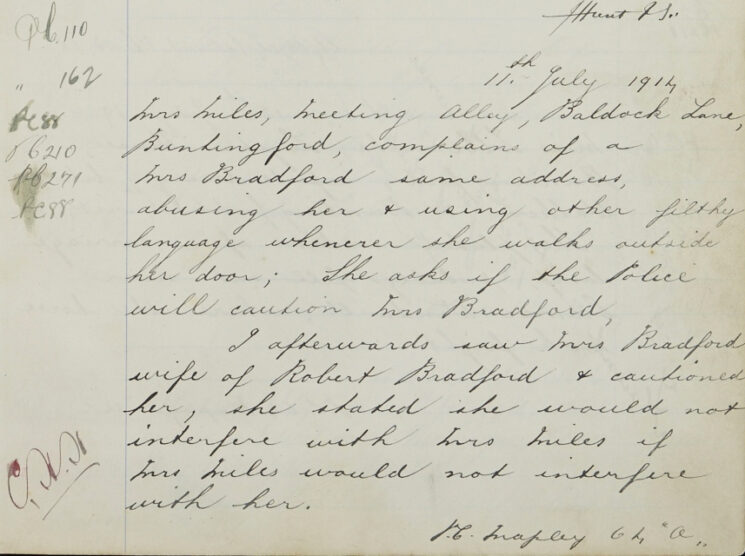 Hunt PS.
Pc 110
" 162
Pc 98
Pc 210
Pc 271
Pc 98
11th July 1914
Mrs Miles, Meeting Alley, Baldock Lane,
Buntingford, complains of a
Mrs Bradford same address,
abusing her & using other filthy
language whenever she walks outside
her door; She asks if the Police
will caution Mrs Bradford,
I afterwards saw Mrs Bradford
wife of Robert Bradford & cautioned
her, she stated she would not
interfere with Mrs Miles if
Mrs Miles would not interfere
with her.
P.C. Mapley 64 "A"